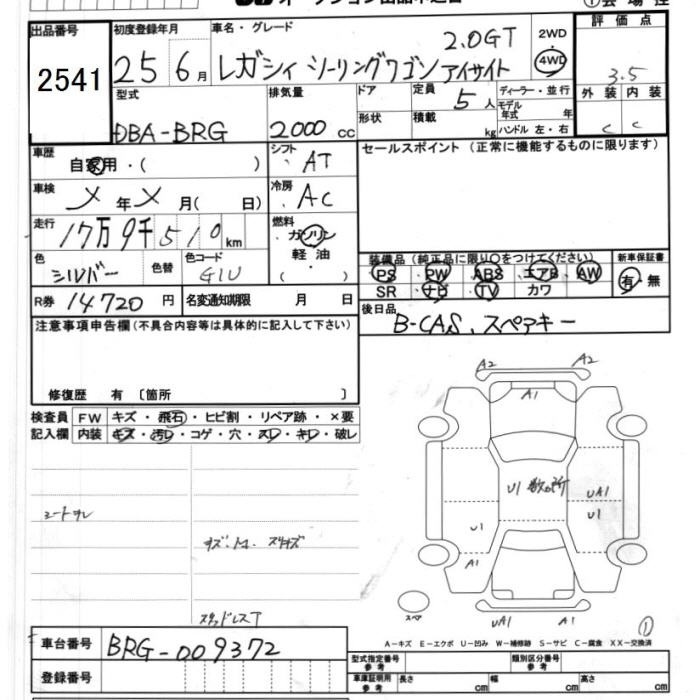 出品番号
2541
初度登録年月
25 6月
車名・グレード
2.0GT
レガシィ ツーリングワゴン アイサイト
2WD
4WD
評価点
3.5
外装 内装
C C
型式
DBA-BRG
排気量
2000 cc
ドア
形状
定員 5人
積載 kg
ディーラー・並行
モデル年式 年
ハンドル 左・右
車歴
自家用・( )
シフト
AT
セールスポイント (正常に機能するものに限ります)
車検
メ年メ月( 日)
冷房
AC
走行
17万9千510km
燃料
ガソリン
軽油
・
( )
色
シルバー
色替
色コード
G1U
装備品 (純正品に限り○をつけてください)
PS PW ABS エアB AW
SR ナビ TV カワ
新車保証書
有・無
R券 14720 円
名変通知期限 月 日
後日品
B-CAS、スペアキー
注意事項申告欄(不具合内容等は具体的に記入して下さい)
修復歴 有 〔箇所 〕
検査員記入欄
FW キズ・飛石・ヒビ割・リペア跡・×要
内装 キズ・汚レ・コゲ・穴・スレ・キレ・破レ
シートヨレ
スタッドレスT
A2 A2
A1
U1 数ヶ所
UA1
U1
U1
A1
スペア
UA1 A1
①
A-キズ E-エクボ U-凹み W-補修跡 S-サビ C-腐食 XX-交換済
車台番号 BRG-009372
登録番号
型式指定番号 参考
類別区分番号 参考
車庫証明用 参考
長さ cm 幅 cm 高さ cm